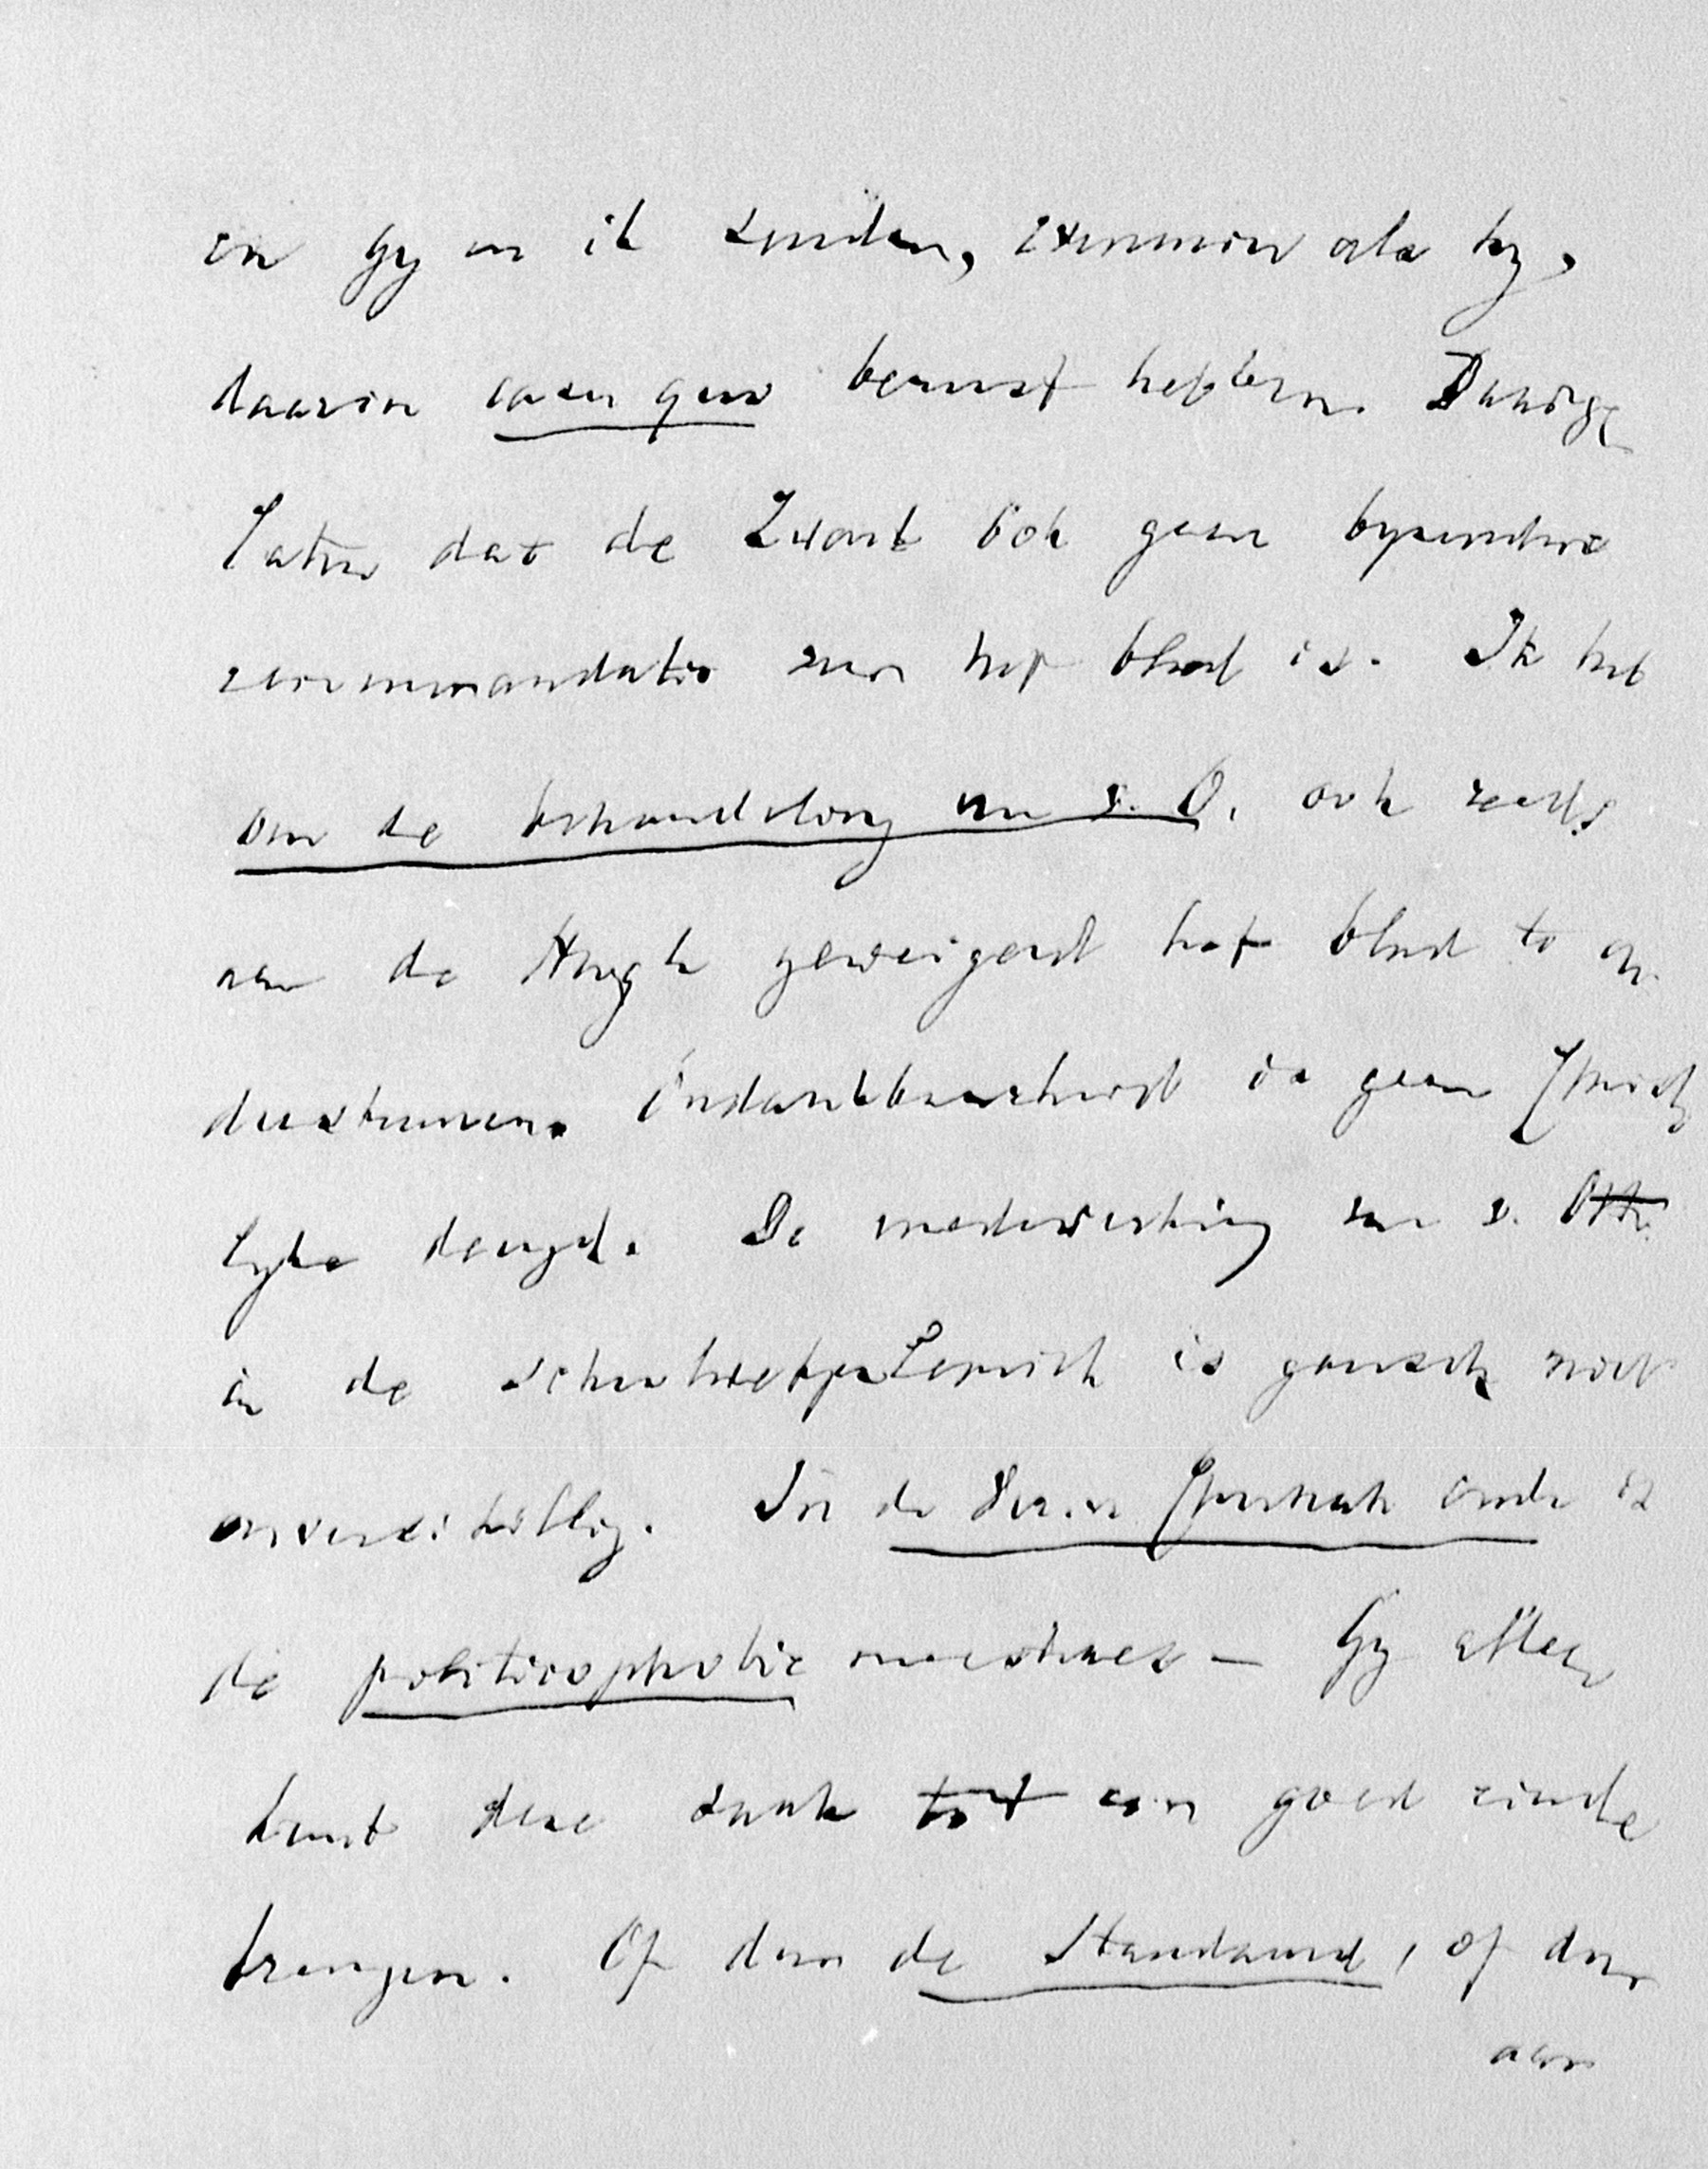 en Gy en ik zouden, evenmin als hy,
daarin casu quo berust hebben. Daarge
laten dat de Zwart ook geen byzondere
recommandatie van het blad is. Ik heb
om de behandeling van v. O. ook reeds
aan de Hoogh geweigerd het blad te on
dersteunen. Ondankbaarheid is geen Christe
lyke deugd. De medewerking van v. Otte.
in de schoolwetpolemiek is gansch niet
onverschillig. In de Vereen. Christ. is
de politicophobie meestnes — Gy alleen
kunt deze zaak tot een goed einde
brengen. Of door de Standaard, of door
aan